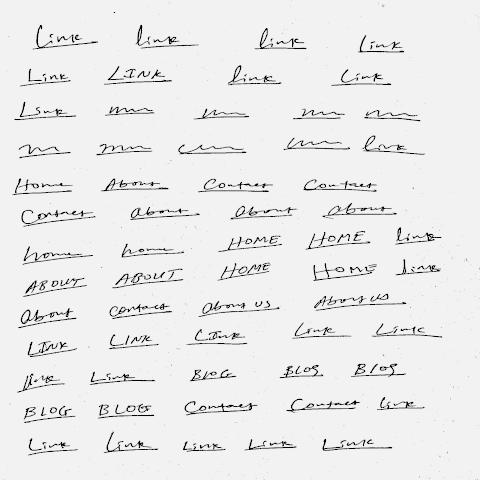 Link link link Link
Link LINK link Link
Link
link
Home About Contact Contact
Contact About About About
home home HOME HOME link
ABOUT ABOUT HOME HOME link
About contact About us About us
LINK LINK LINK Link Link
link Link BLOG BLOG BLOG
BLOG BLOGG Contact Contact link
Link Link Link Link Link